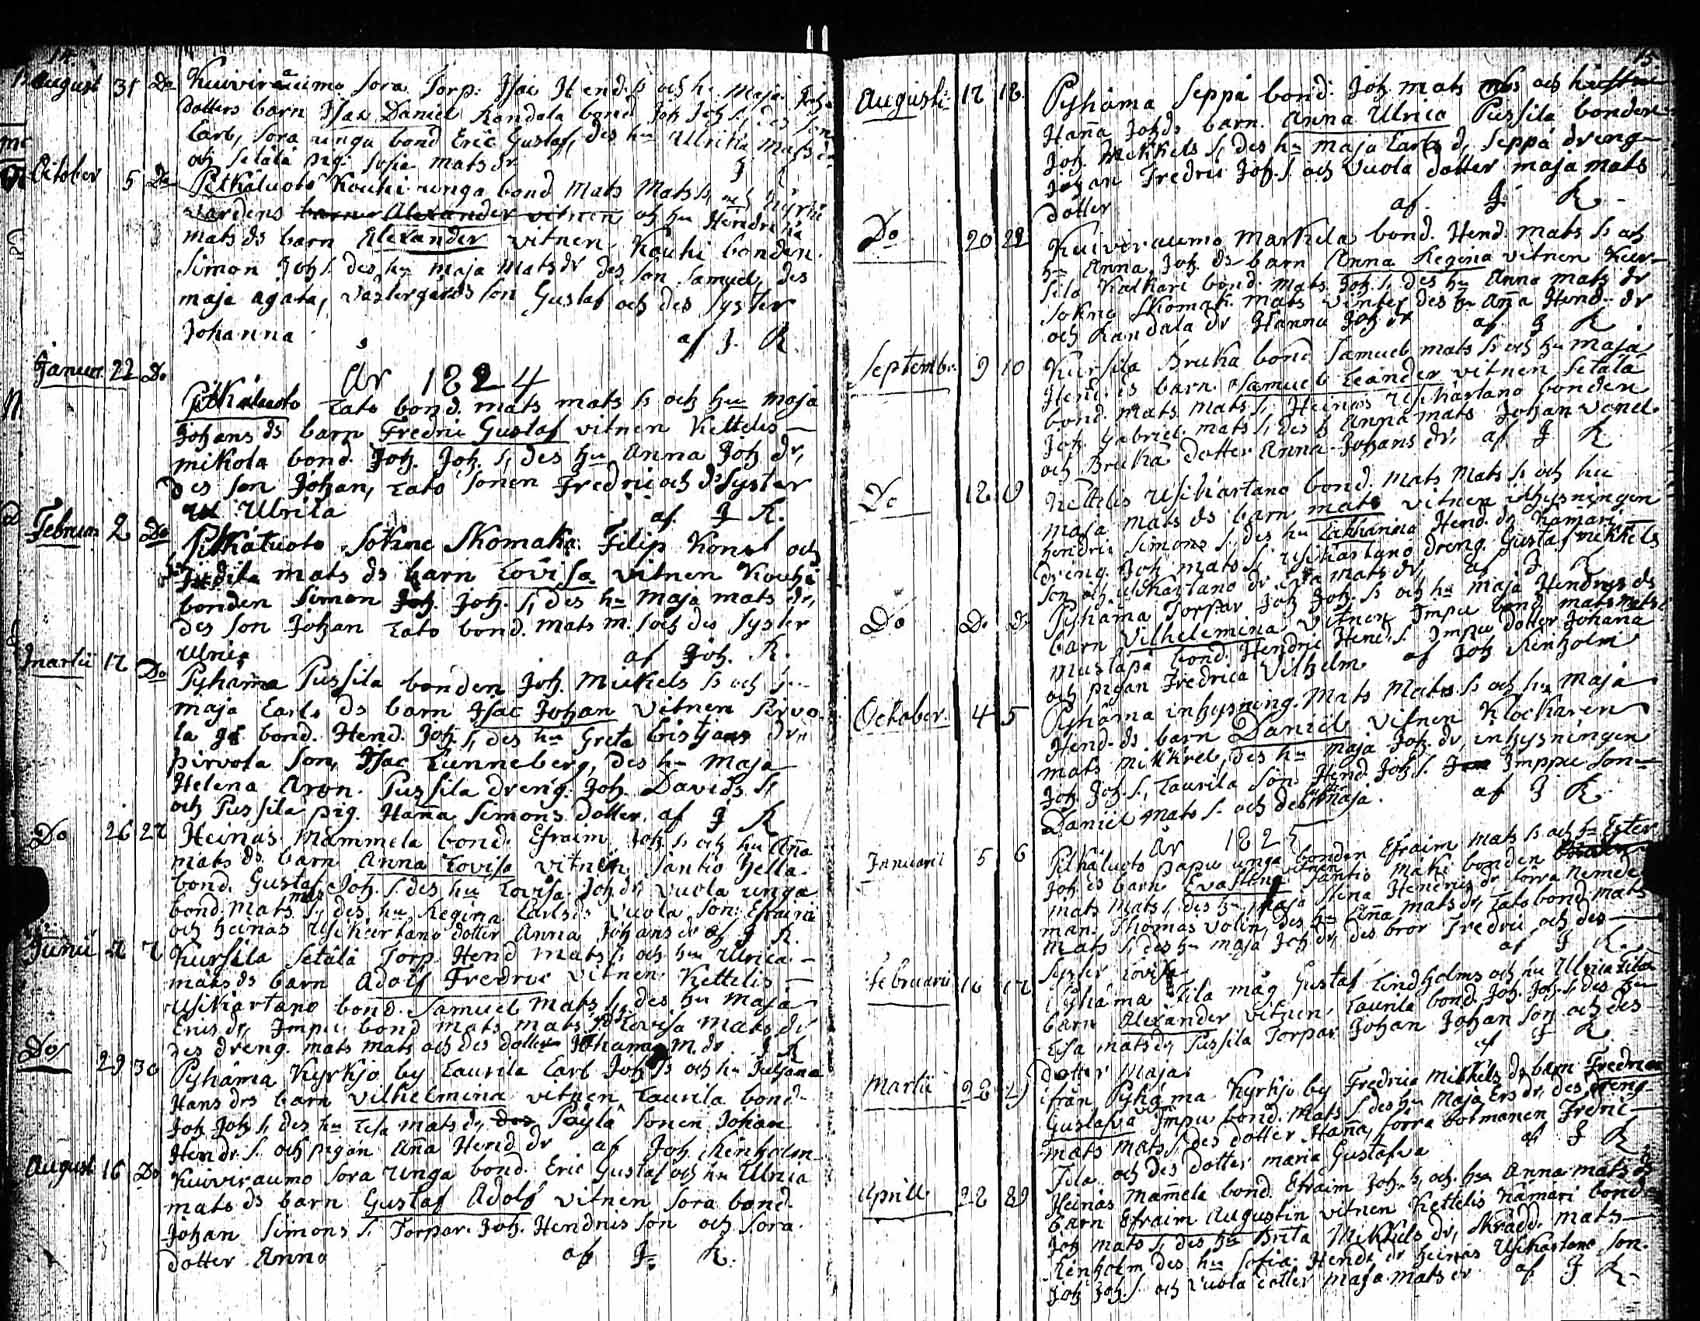 14
August 31 Do Kuiviraumo Sora Torp. Isac Hend. S. och hu Maja Joh
dotters barn Isac Daniel Randala bond Joh Joh S. des son
Carl, Sora unga bond Eric Gustaf, des hu Ulrika mats dr
och Setälä pig. Sofia matsdr J R
October 5 Do Pitkäluoto Kouhi unga bond Mats Mats S.
värdens Alexander vitnen och hu Hendrika
mats ds barn Alexander vitnen Kouhi bonden
Simon Joh S. des hu maja mats dr des son Samuel, des
maja agata, Västergårds son Gustaf och des syster
Johanna af J. R.
år 1824
Januar 22 Do Pitkäluoto Tato bond. mats mats S och hu maja
Johans ds barn Fredric Gustaf vitnen Kettelis
mikola bond. Joh. Joh. S, des hu Anna Joh dr,
des son Johan, Tato sonen Fredric och ds syster
Ulrika af J R.
Februari 2 Do Pitkäluoto Sokmo Skomaka. Filip Konst och
Judita mats ds barn Lovisa vitnen Kouhi
bonden Simon Joh. S, des hu maja mats dr,
des son Johan Tato bond. mats m. S och des syster
Ulrica af Joh. R.
Martii 12 Do Pyhäma Pussila bonden Joh. Mickels S och hu
maja Carls ds barn Isac Johan vitnen Pirvo
la bond. Hend. Joh S, des hu Greta Cristjans dr
pirvola son Isac Lunneberg, des hu maja
Helena Aron. Pussila dreng. Joh. Davids S
och Pussila pig. Hana Simons dotter af J R
Do 26 27 Heinäs Mammela bond. Efraim Joh S och hu Aña
mats ds. barn Anna Lovisa vitnen Santio Yella
bond. Gustaf Joh. S des hu Lovisa Joh dr Vuola unga
bond. Mats S, des hu Regina Carlsdr Vuola son Efraim
och heinäs Usikartano dotter Anna Johans dr af J R.
Junii 2 7 Kursila Setälä Torp. Hend mats S och hu Ulrica
mats ds barn Adolf Fredric vitnen Kettelis
Usikartano bond. Samuel Mats S, des hu Maja
Erics dr, Impu bond mats mats S Lovisa mats dr
des dreng. mats mats och des dotter Johana m. dr J R
Do 29 30 Pyhäma Kyrkjo by Laurila Carl Joh S och hu Juljana
Hans drs barn Vilhelmina vitnen Laurila bond
Joh Joh S, des hu Lisa mats dr, Päylä sonen Johan
Hendr. S. och pigan Aña Hend dr af Joh. Renholm
August 16 Do Kuiviraumo Sora unga bond. Eric Gustaf och hu Ulrica
mats ds barn Gustaf Adolf vitnen Sora bond
Johan Simons S. Torpar. Joh. Hendrics son och Sora
dotter Anna af J. R.
15
Augusti 12 18 Pyhäma Seppä bond. Joh mats S och hustru
Haña Johds barn. Anna Ulrica Pussila bonden
Joh Mickels S, des hu maja Carls d, Seppä dreng
Johan Fredric Joh. S och Vuola dotter maja mats
dotter af J. R.
Do 20 22 Kuiviraumo Markila bond. Hend. mats S och
hu Anna Joh. ds barn Anna Regina vitnen Kur
sila Kalhari bond. mats Joh. S, des hu Anna mats dr
Sokmo Skomak. mats Vinter des hu Aña Hend. dr
och Randala dr Hanna Joh dr af J R
Septembr. 9 10 Kursila Bruka bond Samuel mats S och hu maja
Hend ds barn Samuel Leander vitnen Setälä
bond mats mats S, Heinäs Usikartano bonden
Joh. Gabriel mats S, des h Anna mats Johan
och Bruka dotter Anna Johans dr, af J R
Do 12 Kettelis Usikartano bond. mats Mats S och hu
maja mats ds barn mats vitnen inhysningen
Hendric Simons S, des hu Hend. dr Hamari
dreng. Joh mats S, Usikartano dreng Gustaf mickels
son och Usikartano dr mats dr, af J R
Do Do Do Pyhäma Torpar Joh Joh. S och hu maja Hendrics ds
barn Vilhelemina vitnen Impu bond mats mats
Mustapä bond. Hendric Hend. S. Impu dotter Johana
och pigan Fredrica Vilhelm. af Joh Renholm
October 4 5 Pyhäma inhysning. Mats Mats S och hu maja
Hend. ds barn Daniel vitnen Klockaren
mats mikkel, des hu maja Joh. dr, inhysningen
Joh Joh S, Laurila son Hend Joh S. Impu son
Daniel Mats S. och des maja. af J R.
år 1825
Januarii 5 6 Pitkäluoto Papu unga bonden Efraim mats S och hu Ester
Joh ds barn Eva Stina vitnen Santio mäki bonden
mats mats S, des hu maja Stina Hendrics dr, forra Nemde
man. Thomas Volin, des hu Aña mats dr, Tato bond mats
mats S, des hu maja Joh dr, des bror Fredric och des
syster Lovisa af J R.
Februarii 16 17 Pyhäma Tila måg Gustaf Lindholms och hu Ulrica
barn Alexander vitnen Laurila bond. Joh. Joh. S, des hu
Lisa mats dr, Pussila Torpar Johan Johan son och des
dotter Maja. af J R
Martii 28 29 ifrån Pyhäma Kyrkjo by Fredrica Mikkels ds barn Fredrica
Gustafva Impu bond. mats S, des hu Maja Ers dr, des dreng
mats mats S, des dotter Hana, forra botmanen Fredric
Tila och des dotter maria Gustafva af J R
Aprill 28 29 Heinäs Mamela bond. Efraim Joh. S och hu Anna mats ds
barn Efraim Augustin vitnen Kettelis Hämari bond
Joh mats S, des hu Brita Mikkels dr, skrädd. mats
Renholm des hu Sofia Hend. dr heinäs Usikartano son
Joh Joh. S och Vuola dotter maja mats dr af J R.